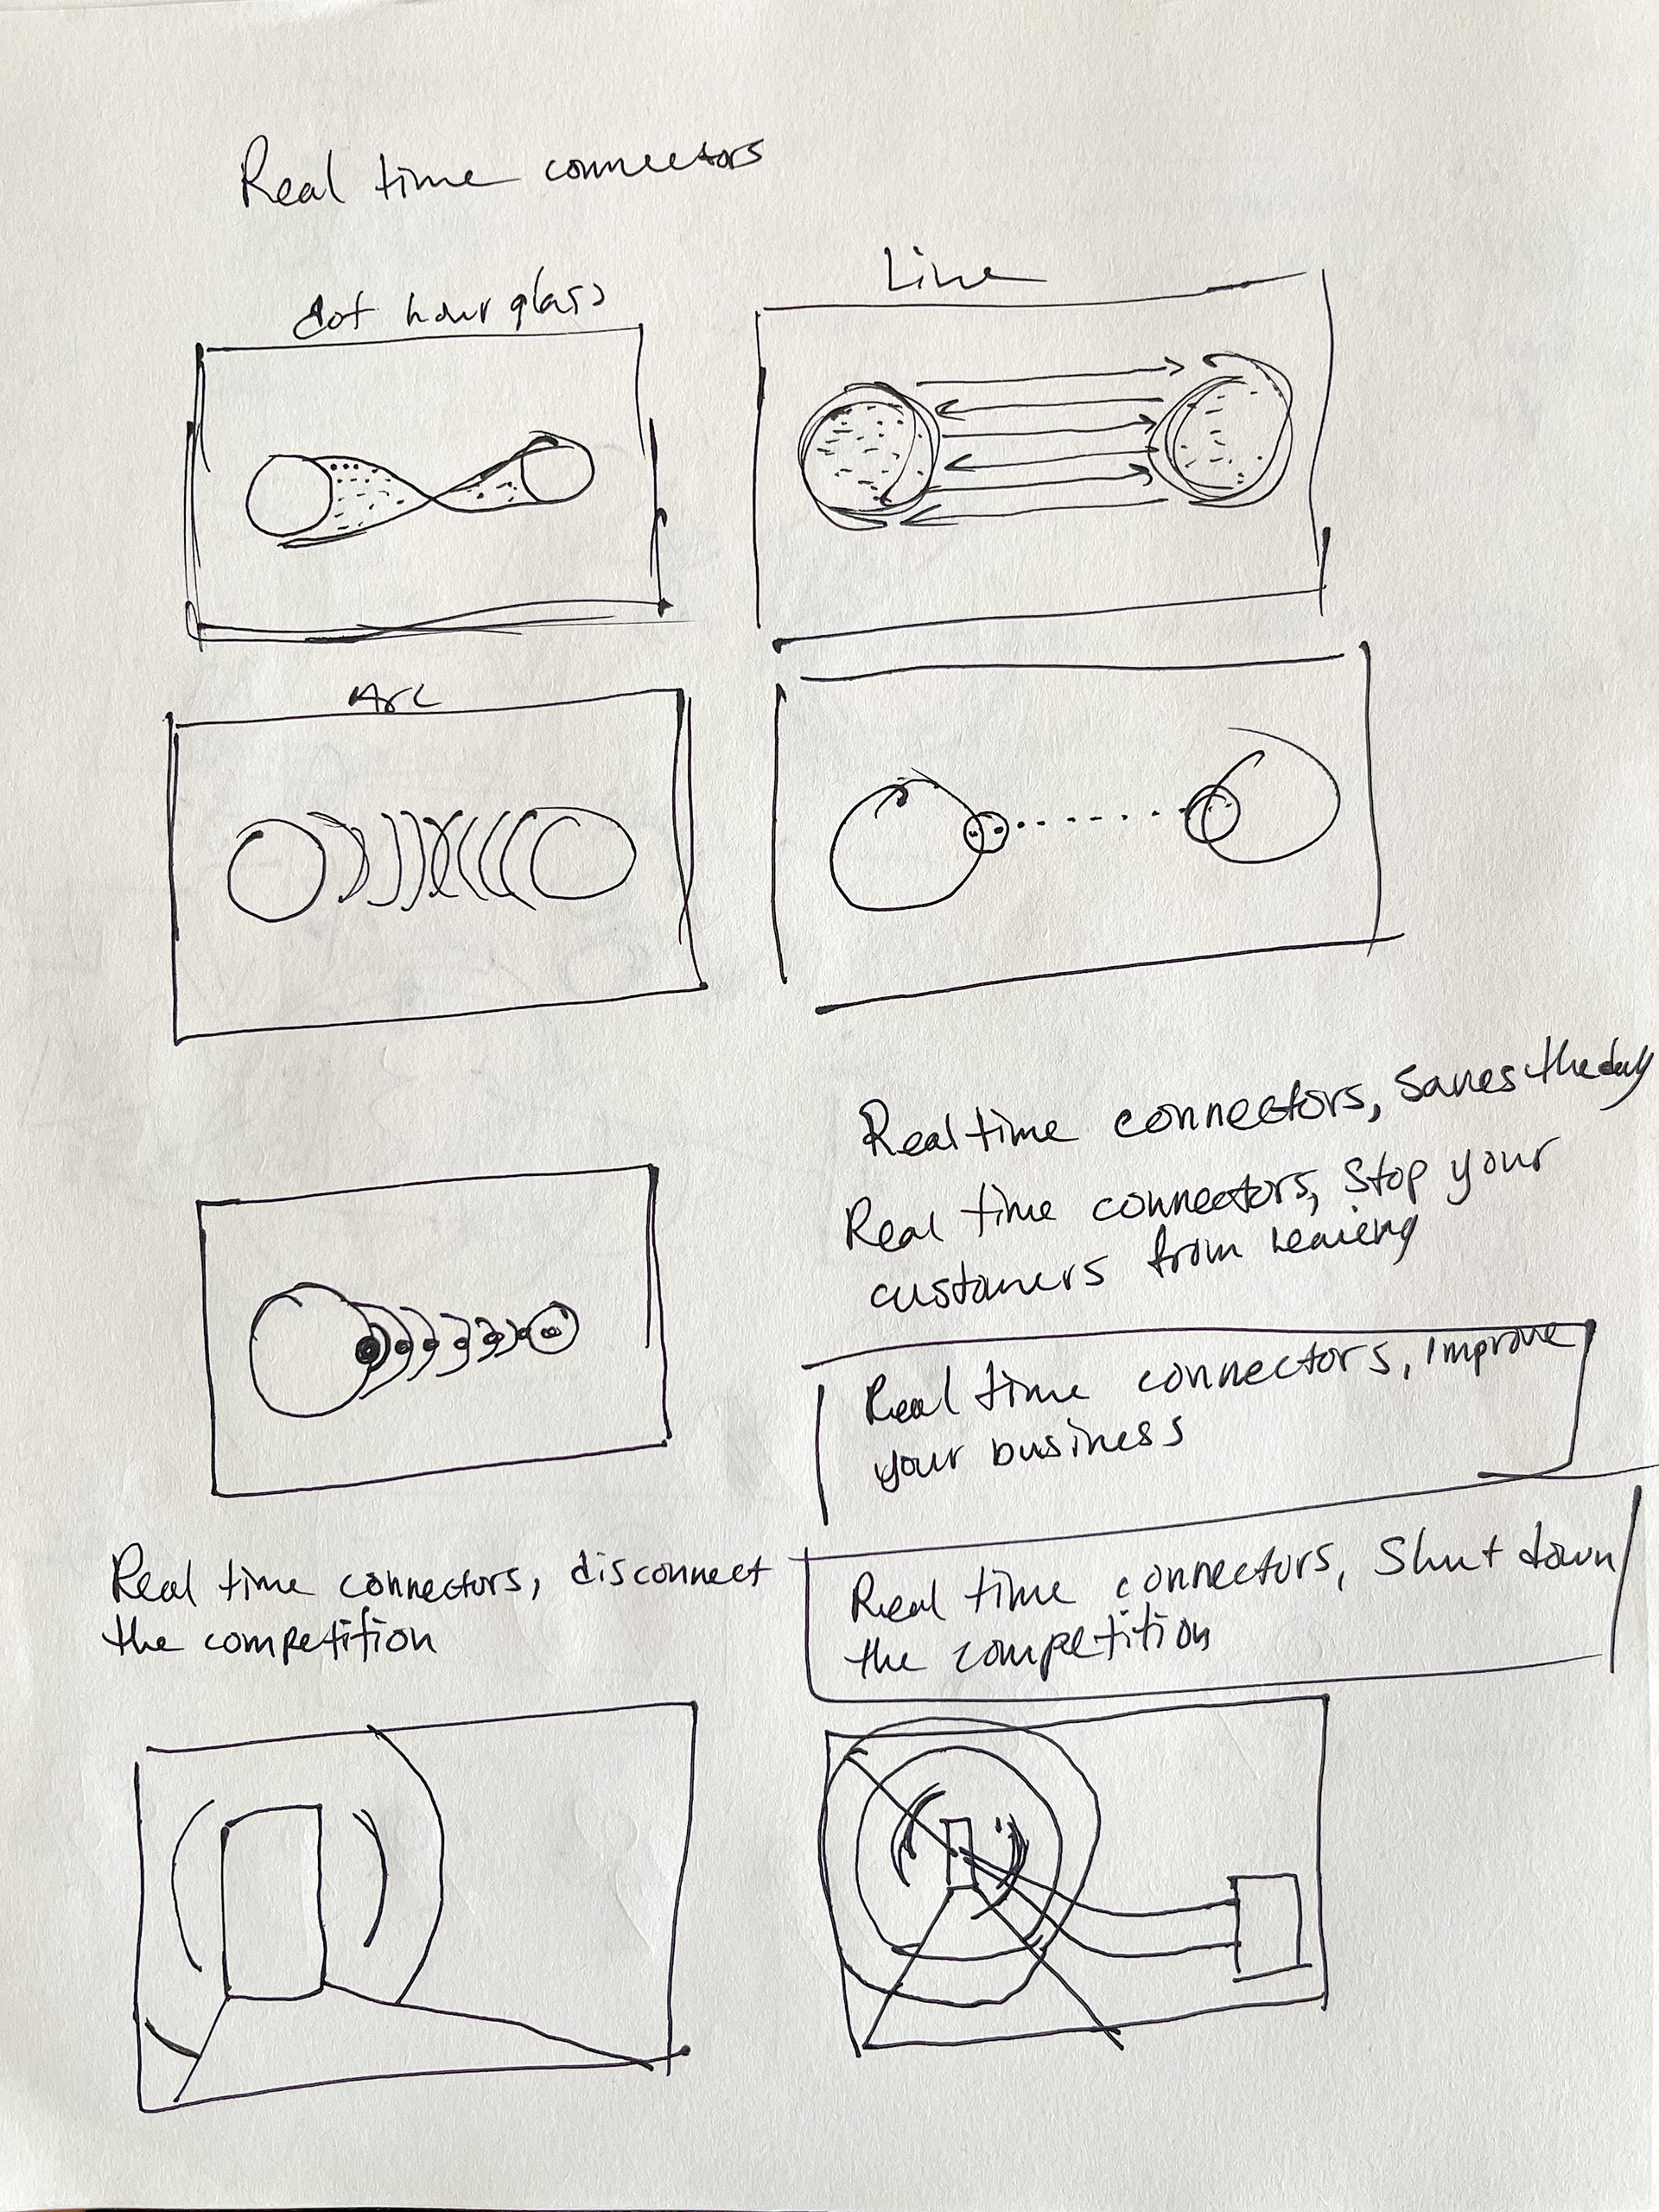 Real time connectors
dot hour glass
Line
Arc
Real time connectors, Saves the day
Real time connectors, Stop your
customers from leaving
Real time connectors, Improve
your business
Real time connectors, disconnect
the competition
Real time connectors, Shut down
the competition